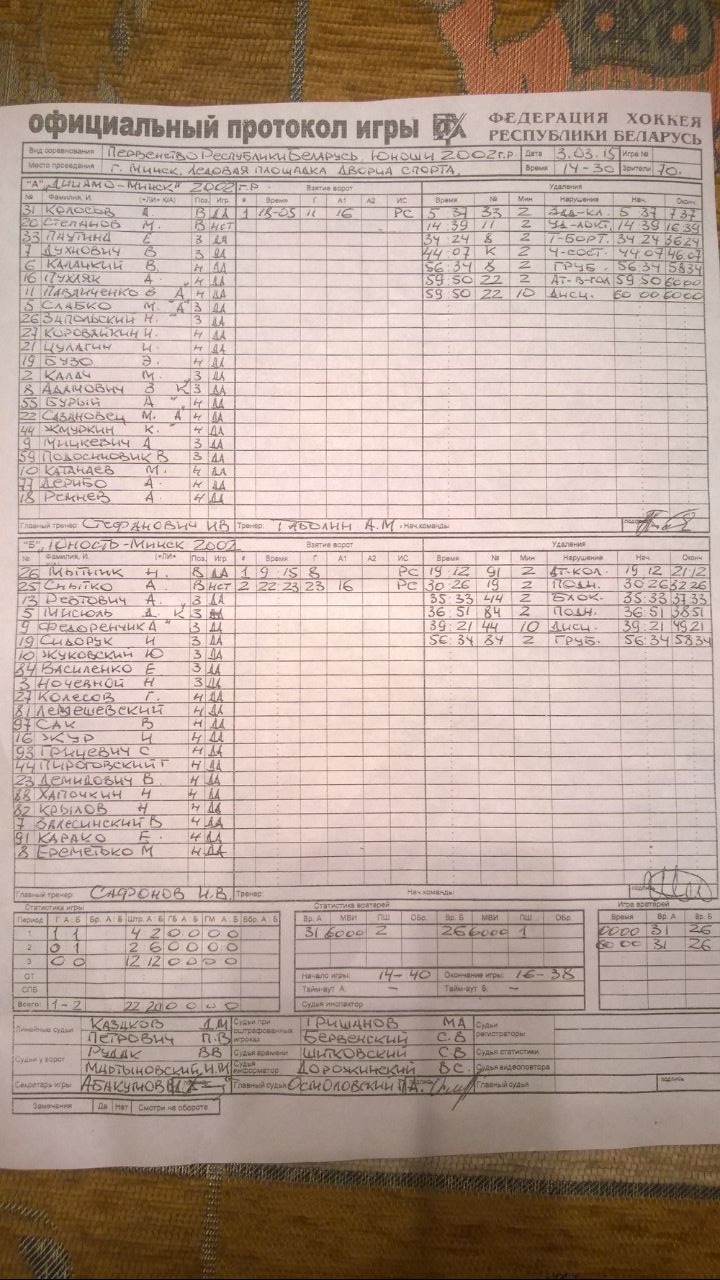 официальный протокол игры ФЕДЕРАЦИЯ ХОККЕЯ
РЕСПУБЛИКИ БЕЛАРУСЬ
Вид соревнования Первенство Республики Беларусь. Юноши 2002 г.р. Дата 3.03.15 Игра №
Место проведения г. Минск, Ледовая площадка Дворца спорта. Время 14-30 Зрители 70.
"А" „Динамо-Минск" 2002 г.р. Взятие ворот Удаления
№ Фамилия, И. (+ЛИ+ К/А) Поз. Игр. # Время Г А1 А2 ИС Время № Мин Нарушения Нач. Оконч.
31 Колосов А. В ДА 1 18-05 11 16 РС 5 37 33 2 Зад-кл. 5 37 7 37
20 Степанов М. В нет 14:39 11 2 Уд-локт. 14 39 16 39
33 Паутина Е 3 ДА 34:24 8 2 Т-борт. 34 24 36 24
7 Духнович В 3 ДА 44:07 К 2 Ч-сост. 44 07 46 07
6 Калацкий В. 4 ДА 56:34 8 2 Груб. 56 34 58 34
16 Пухляк А. 4 ДА 59 50 22 2 Ат-в-гол 59 50 60 00
11 Павличенко В "А" 4 ДА 59 50 22 10 Дисц. 60 00 60 00
5 Слабко М. 3 ДА
26 Запольский Н. 3 ДА
27 Коровайкин И. 4 ДА
21 Цулагин И. 4 ДА
19 Бузо Э. 4 ДА
2 Калач М. 3 ДА
8 Адамович З "К" 3 ДА
55 Бурый А 4 ДА
22 Сазановец М. "А" 4 ДА
44 Жмуркин К. 4 ДА
9 Мицкевич А 3 ДА
59 Подосиновик В 3 ДА
10 Катанаев М. 4 ДА
77 Дерибо А. 4 ДА
18 Ремнев А. 4 ДА
Главный тренер: Стефанович И.В Тренер: Таболин А.М. Нач.команды подпись
"Б" „Юность-Минск 2002 Взятие ворот Удаления
№ Фамилия, И. (+ЛИ+ Поз. Игр. # Время Г А1 А2 ИС Время № Мин Нарушение Нач. Оконч
26 Мытник Н. В ДА 1 9:15 8 РС 19:12 91 2 Ат-кол. 19 12 21:12
25 Снытко А. В нет 2 22:23 23 16 РС 30:26 19 2 Подн. 30 26 32 26
13 Ревтович А. 3 ДА 35:33 44 2 Блок. 35:33 37 33
5 Мисюль А. К 3 ДА 36:51 84 2 Подн. 36 51 38 51
9 Федоренчик А 3 ДА 39:21 44 10 Дисц. 39:21 49 21
19 Сидорук И 3 ДА 56:34 84 2 Груб. 56:34 58 34
10 Жуковский Ю 3 ДА
84 Василенко Е 3 ДА
3 Ночевной Н 3 ДА
27 Колесов Г. 4 ДА
81 Лемешевский 4 ДА
97 Сак В 4 ДА
16 Жур И 4 ДА
93 Грицевич С 4 ДА
44 Пироговский Г 4 ДА
23 Демидович В. 4 ДА
88 Хапочкин Н 4 ДА
82 Крылов Н 4 ДА
7 Залесинский В 4 ДА
91 Карако Е. 4 ДА
8 Ереметько М 4 ДА
Главный тренер: Сафонов И.В. Тренер: Нач.команды подпись
Статистика игры Статистика вратарей Игра вратарей
Период Г А Б Бр. А Б Штр. А Б ГБ А Б ГМ А Б Вбр. А Б Вр. А МВИ ПШ Обр. Вр. Б МВИ ПШ Обр. Время Вр. А Вр. Б
1 1 1 4 2 0 0 0 0 31 6000 2 26 6000 1 0000 31 26
2 0 1 2 6 0 0 0 0 60 00 31 26
3 0 0 12 12 0 0 0 0
ОТ Начало игры: 14-40 Окончание игры: 16-38
СПБ Тайм-аут А: – Тайм-аут Б: –
Всего: 1-2 22 20 0 0 0 0 Судья инспектор
Линейные судьи Казаков Судьи при оштрафованных игроках Гришанов МА Судьи регистраторы
Петрович П.В Бервенский С.В
Судьи у ворот Рудак ВВ Судья времени Шитковский СВ Судьи статистики
Мартыновский И.И Судья информатор Дорожинский ВС. Судьи видеоповтора
Секретарь игры Абакумов Главный судья Осмоловский Главный судья подпись
Замечания Да Нет Смотри на обороте